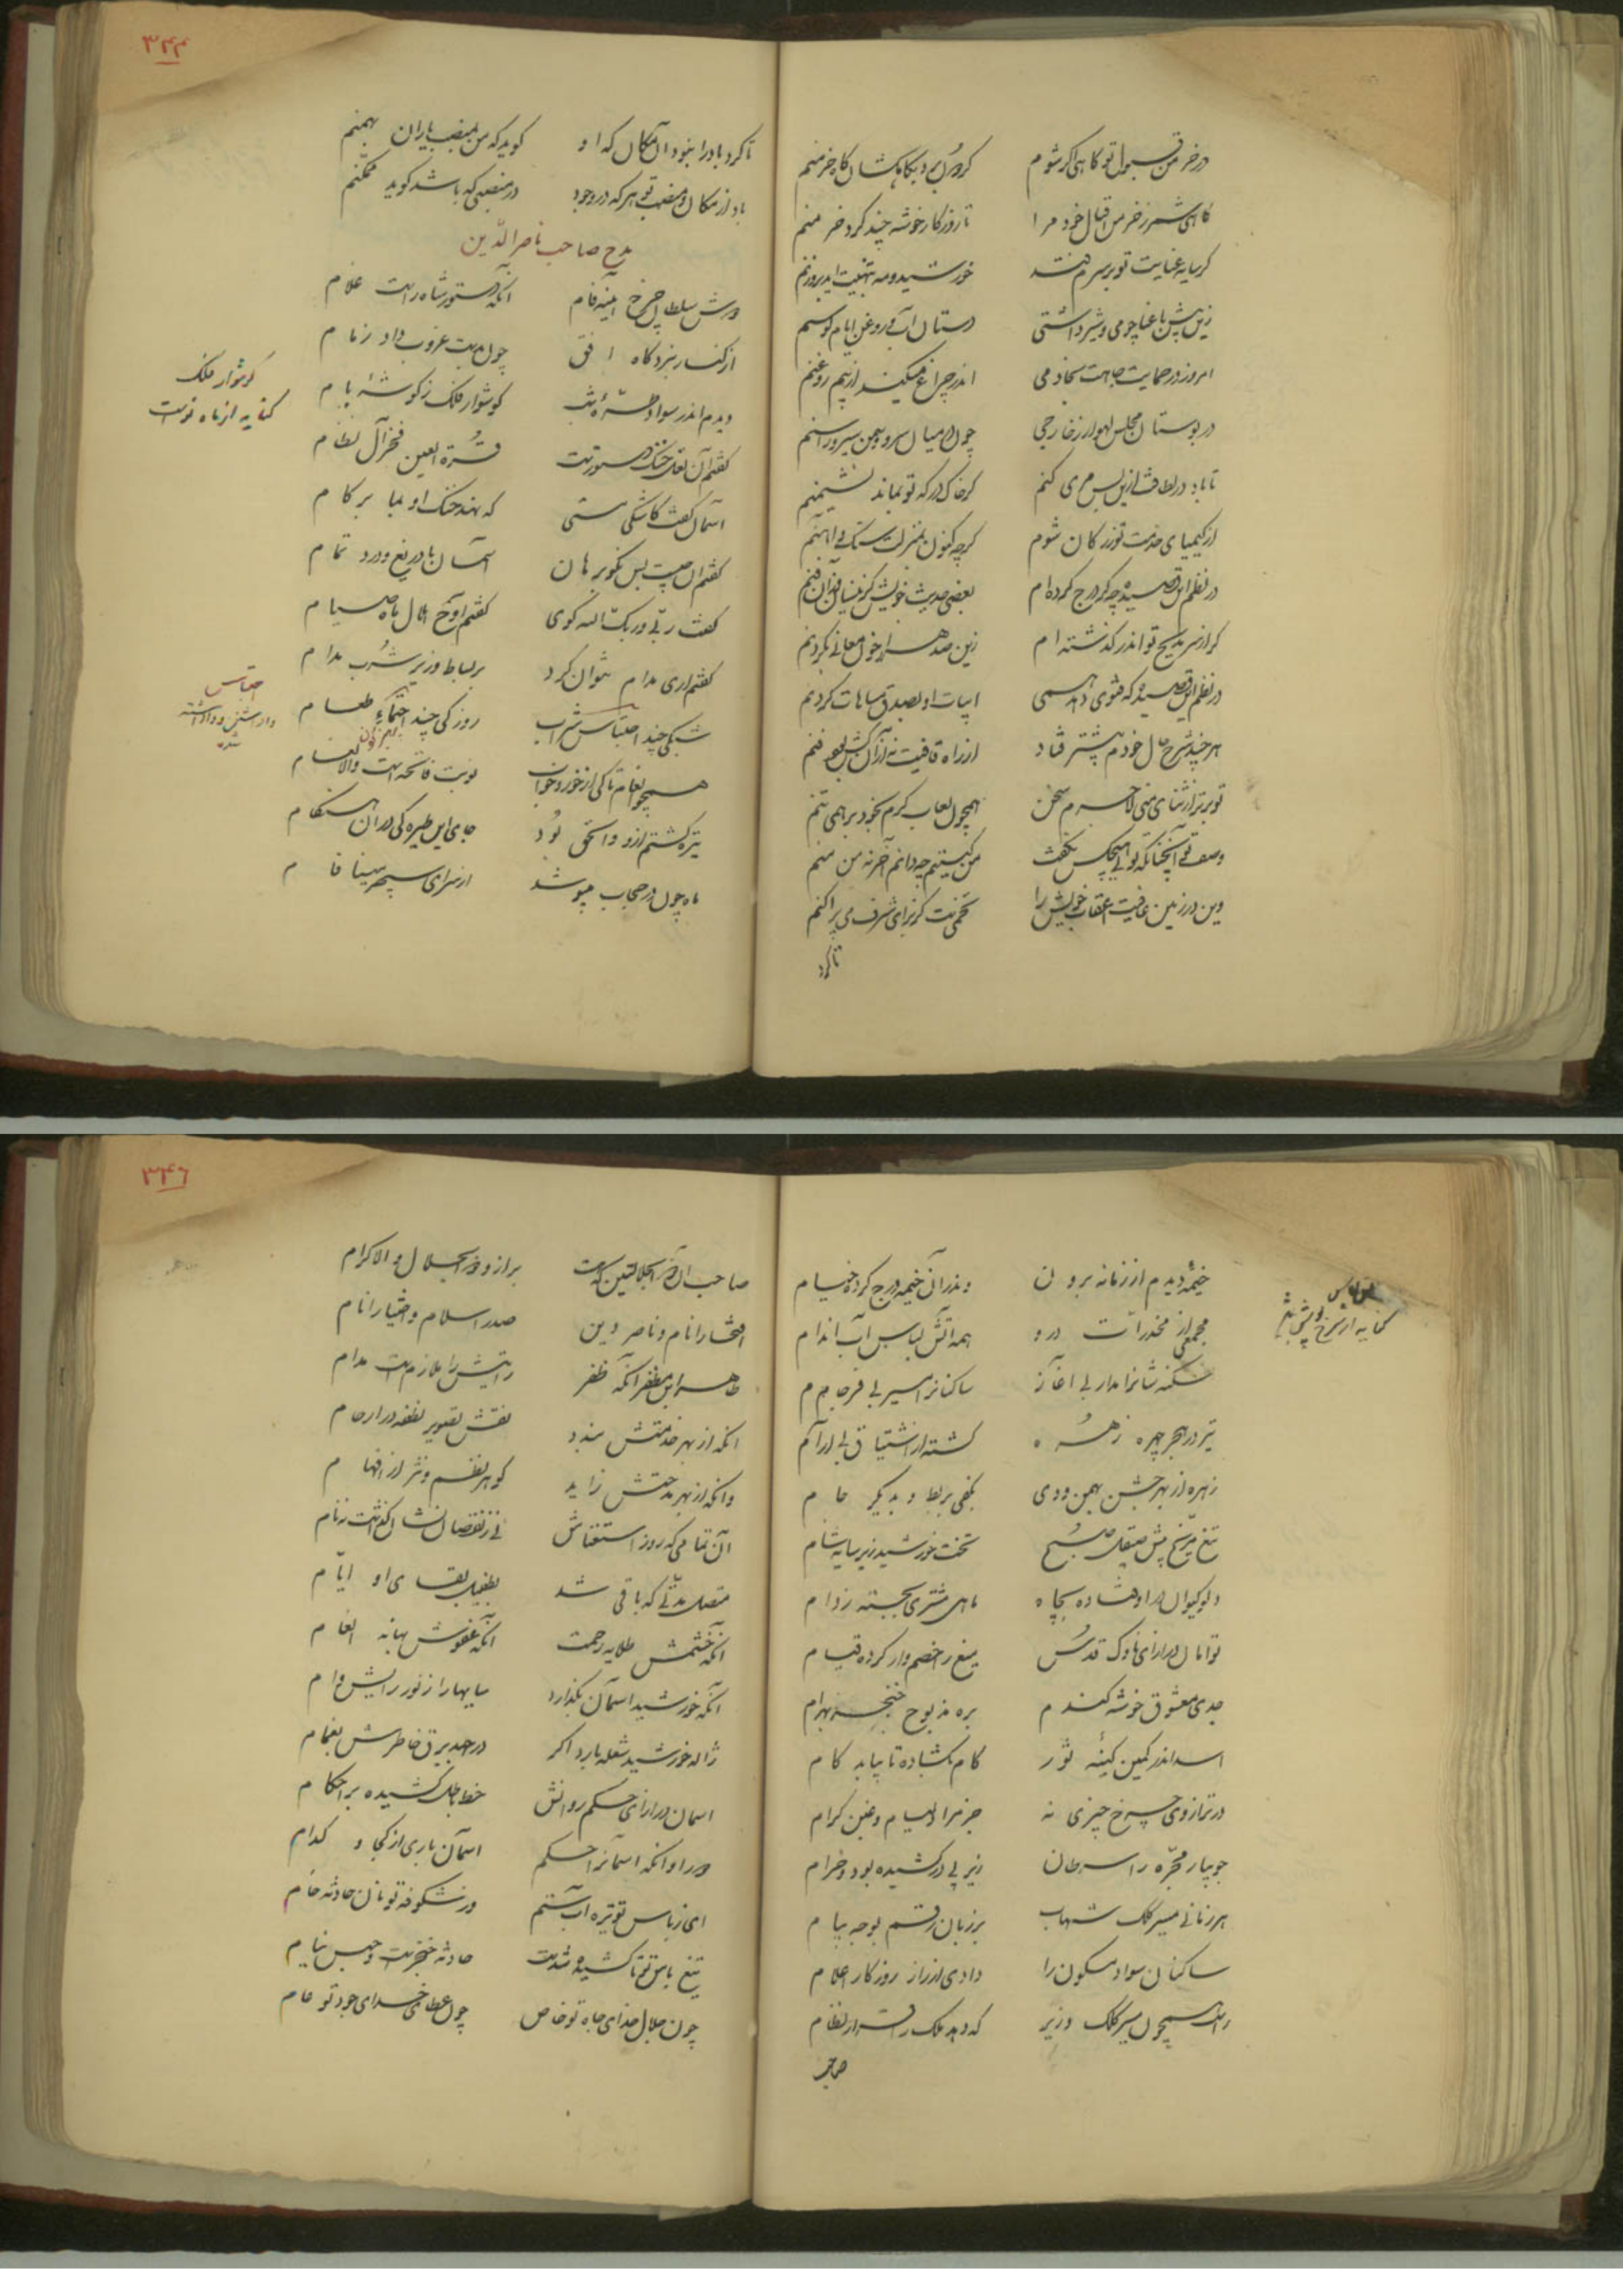 در خرمن قبول تو کاهی اگر شوم
گردون برد بکاهکشان کاه خرمنم
کاهی شمر ز خرمن اقبال خود مرا
تا روزگار خوشه چند گرد خرمنم
گر سایه عنایت تو بر سرم فتد
خورشید و مه به تهنیت آید بروزنم
زین پیش با غباچو می و شیر داشتی
دستان آب و روغن ایام توسنم
امروز در حمایت جاهت بجای می
اندر چراغ میکند از بیم روغنم
در بوستان مجلس لهو ار ز خارجی
چون در میان سرو و سمن سیر و راسنم
تا باد در لطافت ازین پس می کنم
گر خاک درگه تو بماند نشیمنم
از کیمیای خدمت تو زر کان شوم
گرچه کنون بمنزلت سنگ و آهنم
در نظم این قصیده چه گر درج کرده ام
بعضی حدیث خویش
گر از سر مدیح تو اندر گذشته ام
زین صد هزار خون معانی بگردنم
در نظم این قصیده که فتوی دهد همی
ابیات او بصدق مباهات کردنم
هر چند شرح حال خودم بیشتر فتاد
از راه قافیت نه از آن کش بعو فنم
تو برتر از ثنای منی لاجرم سخن
همچون لعاب کرم بخود بر همی تنم
وصف تو آنچنانکه توئی هیچکس نگفت
من کیستم چه دانم آخر نه من منم
وین در زمین عافیت اعقاب خویش را
تخمی است کز برای شرف می پراکنم
تا گرد
۳۴۴
تا گرد باد را نبود آن مکان که او
گوید که من بمنصب باران بهمنم
باد از مکان و منصب تو هر که در وجود
در منصبی که باشد گوید ممکنم
مدح صاحب ناصر الدین
دوش سلطان چرخ آینه فام
آنکه دستور شاه راست غلام
از کنار نبردگاه افق
چون بدست غروب داد زمام
دیدم اندر سواد طره شب
گوشوار فلک ز گوشه بام
گوشوار فلک
کنایه از ماه نوست
گفتم آن نعل خنگ دستور است
قرة العین فخر آل نظام
آسمان گفت کاشکی هستی
که نهد خنگ او بما بر گام
گفتم آن چیست پس بگو برهان
آسمان با دریغ و درد تمام
گفت ربی و ربک الله گوی
گفتم آوخ هلال ماه صیام
گفتم آری مدام نتوان کرد
بر بساط وزیر شرب مدام
شبکی چند احتباس شراب
روزکی چند احتمای طعام
احتباس
داشتن و واداشته
شده
همچو انعام تا کی از خورد و خواب
نوبت فاتحه است و الانعام
تیره گشتم ازو و الحق بود
جای این طیره گی در آن هنگام
ماه چون در حجاب میوشد
از سرای سپهر مینا فام
۳۴۶
خیمه دیدم از زمانه برون
وندر آن خیمه درج کرده خیام
کنایه از سرخ پوشی باشد
مجمعی از مخدرات درو
همه آتش لباس آب اندام
سکنه شانرا مدار بی آغاز
ساکنانرا مسیر بی فرجام
تیر در هجر چهره زهره
گشته از اشتیاق بی آرام
زهره از بهر جشن بهمن و دی
بکفی بربط و بدیگر جام
تیغ مریخ پیش صیقل صبح
تخت خورشید زیر سایه شام
دلو کیوان در اوفتاده بچاه
ماهی مشتری بجسته ز دام
توامان در ازای ناوک قوس
تیغ را خصم وار کرده قیام
جدی معشوق خوشه گندم
بره مذبوح خنجر بهرام
اسد اندر کمین کینه ثور
کام بگشاده تا بیابد کام
در ترازوی چرخ چیزی نه
جز مراد لئیام و غبن کرام
جویبار مجره را سرطان
زیر پی در کشیده بود و خرام
هر زمانی مسیر کلک شهاب
بر زبان رقم بوجه پیام
ساکنان سواد مسکون را
دادی از راز روزگار اعلام
راست همچون مسیر کلک وزیر
که دهد ملک را قرار نظام
صاحب
صاحب آن ذو الجلالتین که هست
برتر از و ذو الجلال والاکرام
افتخار انام و ناصر دین
صدر اسلام و اختیار انام
طاهر ابن مظفر آنکه ظفر
رایتش را ملازم است مدام
آنکه از بهر خدمتش بندد
نقش تصویر نطفه در ارحام
وانکه از بهر مدحتش زاید
گوهر نظم و نثر از افهام
آن تمامی که روز استغناش
متصل مدتی که باقی شد
بطفیل بقای او ایام
آنکه خشمش طلایه رحمت
آنکه عفوش بهانه انعام
آنکه خورشید آسمان بگذارد
سایها را ز نور رایش وام
ژاله خورشید شعله بارد اگر
در جهد برق خاطرش بغمام
آسمان در ازای حکم روانش
خط باطل کشیده بر احکام
ورراوانکه آسمانرا حکم
آسمان باری از کجا و کدام
ای ز باس تو تیره آب ستم
وز شکوفه تو نان حادثه خام
تیغ باس تو تا کشیده شدست
حادثه خنجریست حبس نیام
چون جلال خدای جاه تو خاص
چون عطای خدای جود تو عام